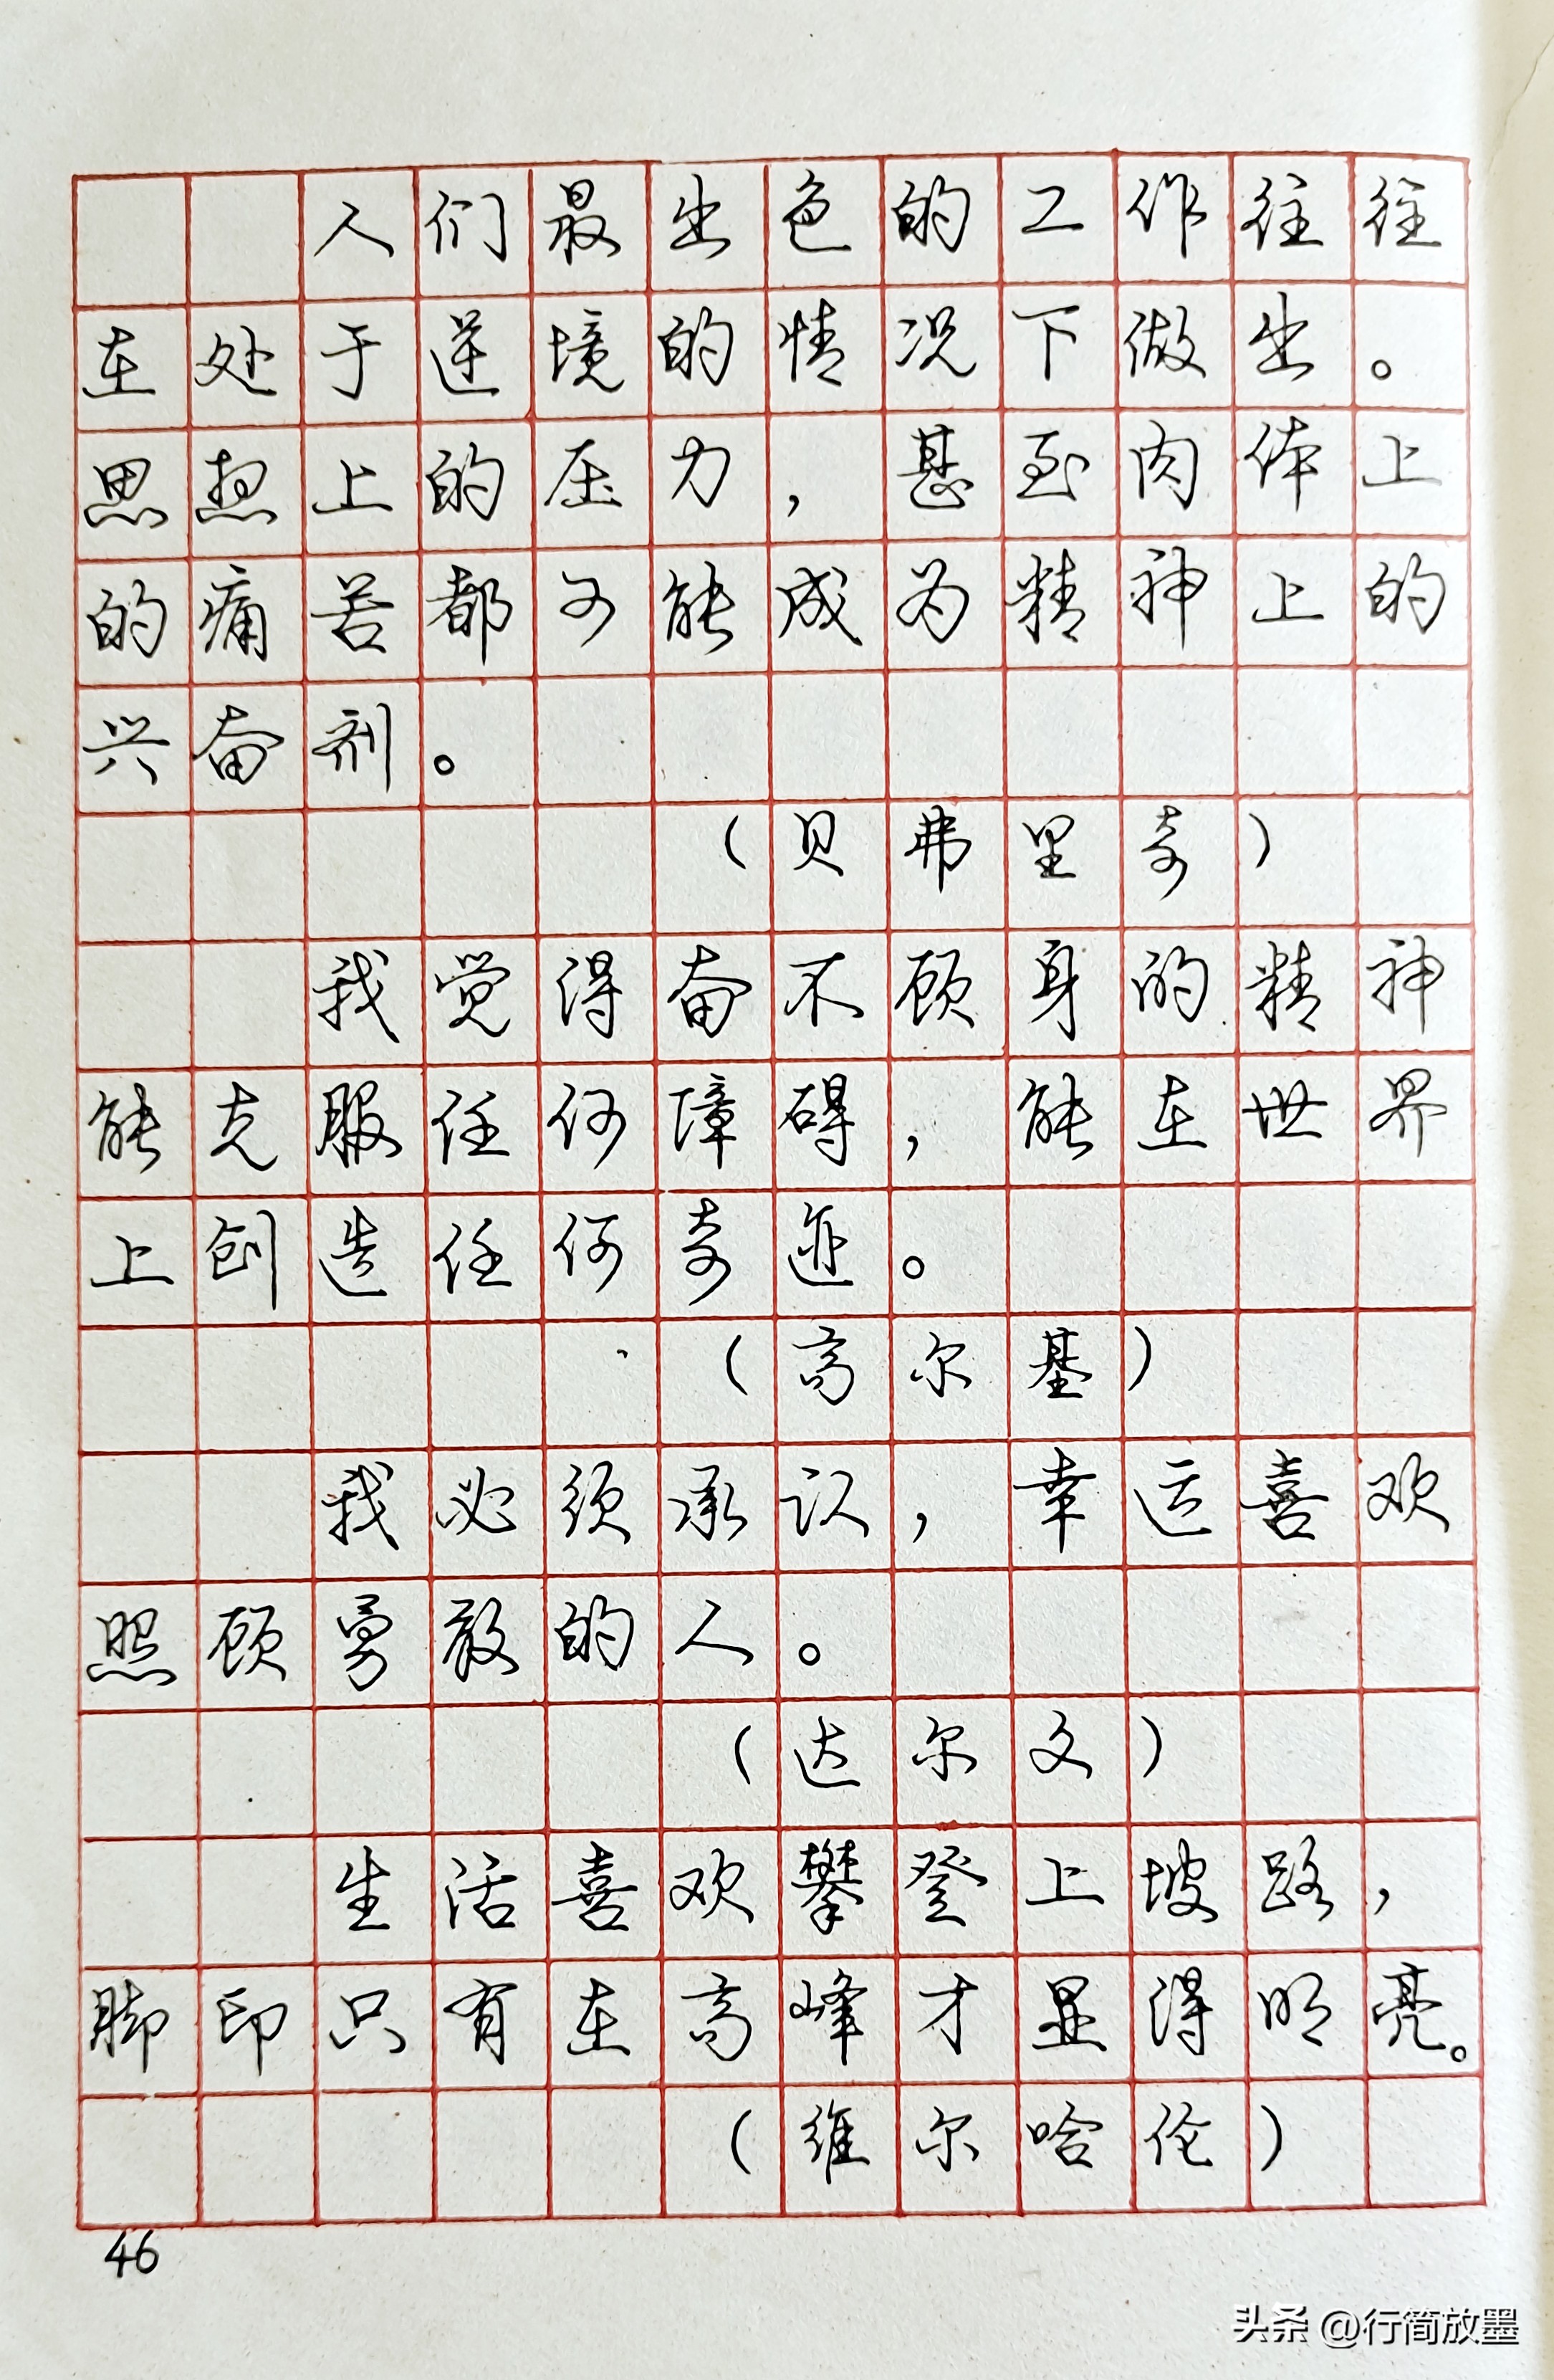 人们最出色的工作往往
在处于逆境的情况下做出。
思想上的压力，甚至肉体上
的痛苦都可能成为精神上的
兴奋剂。
（贝弗里奇）
我觉得奋不顾身的精神
能克服任何障碍，能在世界
上创造任何奇迹。
（高尔基）
我必须承认，幸运喜欢
照顾勇敢的人。
（达尔文）
生活喜欢攀登上坡路，
脚印只有在高峰才显得明亮。
（维尔哈伦）
46
头条 @行简放墨